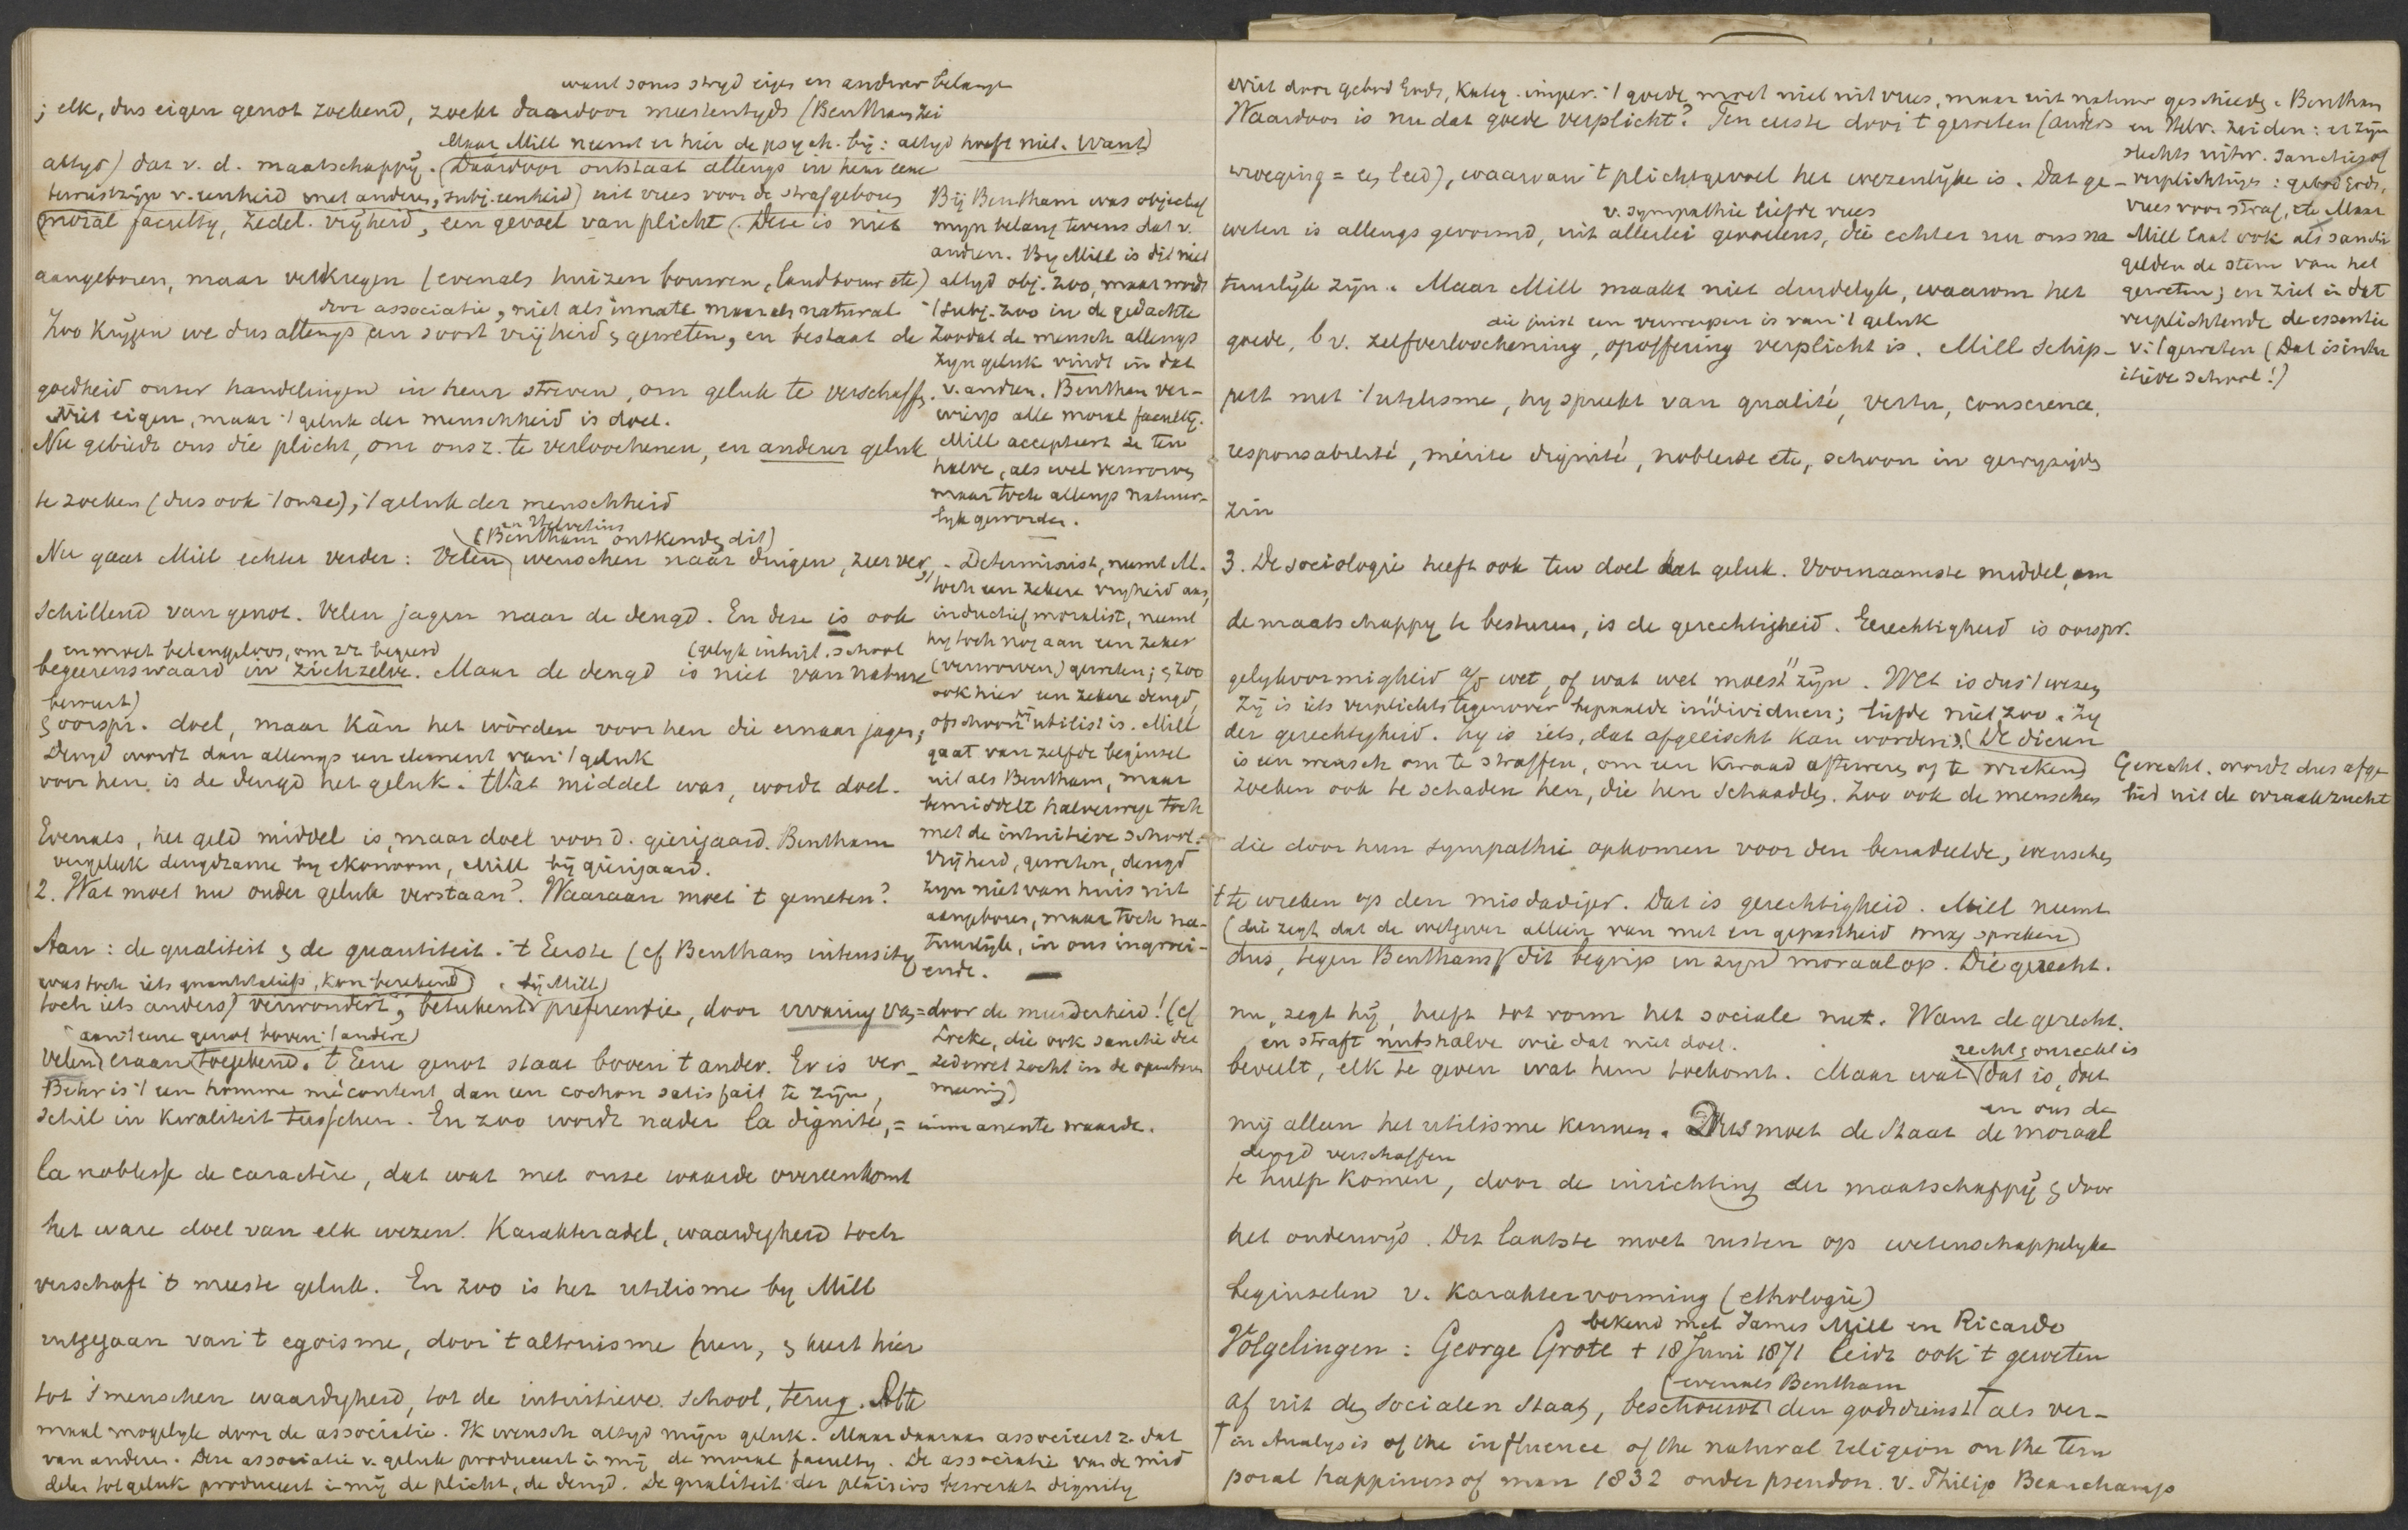 want soms stryd eigen en anderer belange
; elk, dus eigen genot zoekend, zoekt daardoor meestentyds (Bentham zei
Maar Mill neemt er hier de psych. by: altyd hoeft niet. Want)
altyd) dat v. d. maatschappÿ. (Daardoor ontstaat allengs in hem eene
bewustzijn v. eenheid met anderen, subj. eenheid) uit vrees voor de straf geboren
moral faculty, zedel. vrÿheid, een gevoel van plicht. Deze is niet
aangeboren, maar verkregen (evenals huizen bouwen, landbouw etc)
door associatie, niet als innate maar als natural
Zoo krÿgen we dus allengs een soort vrÿheid & geweten, en bestaat de
goedheid onzer handelingen in heur streven, om geluk te verschaffen.
Niet eigen, maar 't geluk der menschheid is doel.
Nu gebiedt ons die plicht, om ons z. te verloochenen, en anderer geluk
te zoeken (dus ook 't onze), 't geluk der menschheid
en Helvetius
(Bentham ontkende dit)
Nu gaat Mill echter verder: Velen wenschen naar dingen, zeer ver-
schillend van genot. Velen jagen naar de deugd. En deze is ook
en moet belangeloos, om zz. begeerd
(gelyk intuit. school
begeerenswaard in zichzelve. Maar de deugd is niet van nature
beweert)
& oorspr. doel, maar kán het wórden voor hen die ernaar jagen;
Deugd wordt dan allengs een element van 't geluk
voor hen is de deugd het geluk. Wat middel was, wordt doel.
Evenals, het geld middel is, maar doel voor d. gierigaard. Bentham
vergeleek deugdzame by ekonoom, Mill bÿ gierigaard.
2. Wat moet nu onder geluk verstaan? Waaraan moet 't gemeten?
Aan: de qualiteit & de quantiteit. 't Eerste (cf Benthams intensity
was toch iets quantitatiefs, kon berekend) bÿ Mill)
toch iets anders) verwondert, beteekent preferentie, door ervaring van
aan 't eene genot boven 't andere)
velen eraan toegekend. 't Eene genot staat boven 't ander. Er is ver-
Beter is 't een homme mécontent dan een cochon satisfait te zyn,
schil in kwaliteit tusschen. En zoo wordt nader la dignité, = immanente waarde.
la noblesse de caractère, dat wat met onze waarde overeenkomt
het ware doel van elk wezen. Karakteradel, waardigheid toch
verschaft 't meeste geluk. En zoo is het utilisme by Mill
uitgegaan van 't egoisme, door 't altruisme heen, & keert hier
tot 's menschen waardigheid, tot de intuitieve school, terug. Alte
maal mogelyk door de associatie. Ik wensch altyd mÿn geluk. Maar daaraan associeert z. dat
van anderen. Deze associatie v. geluk produceert in mÿ de moral faculty. De associatie van de mid
delen tot geluk produceert in mÿ de plicht, de deugd. De qualiteit der plaisirs bewerkt dignity
Bÿ Bentham was objectief
myn belang tevens dat v.
andren. By Mill is dit niet
altyd obj. zoo, maar wordt
't subj. zoo in de gedachte
Zoodat de mensch allengs
zyn geluk vindt in dat
v. andren. Bentham ver-
wierp alle moral faculty.
Mill accepteert ze ten
halve, als wel verworven
maar toch allengs natuur-
lyk geworden.
- Determinist, neemt M.
toch een zekere vryheid aan,
inductief moralist, neemt
hy toch nog aan een zeker
(verworven) geweten; & zoo
ook hier een zekere deugd,
ofschoon hÿ utilist is. Mill
gaat van zelfde beginsel
uit als Bentham, maar
bemiddelt halverwege toch
met de intuitieve school.
Vrÿheid, geweten, deugd
zyn niet van huis uit
aangeboren, maar toch na-
tuurlÿk, in ons ingroei-
ende.
= door de meerderheid! (cf
Locke, die ook sanctie der
zedewet zocht in de openbare
meening)
Niet door gebod Gods, Kateg. imper. 't goede moet niet uit vrees, maar uit natuur geschieden. Bentham
Waardoor is nu dat goede verplicht? Ten eerste door 't geweten (anders
wroeging = een leed), waarvan 't plichtgevoel het wezenlÿke is. Dat ge-
v. sympathie liefde vrees
weten is allengs gevormd, uit allerlei gevoelens, die echter nu ons na
tuurlÿk zÿn. Maar Mill maakt niet duidelyk, waarom het
die juist een verwerpen is van 't geluk
goede, bv. zelfverloochening, opoffering verplicht is. Mill schip-
pert met 't utilisme, hy spreekt van qualité, vertu, conscience,
responsabilité, mérite dignité, noblesse etc, schoon in gewyzigden
zin
en Helv. zeiden: er zÿn
slechts uitw. sancties of
verplichtingen: gebod Gods,
vrees voor straf, etc. Maar
Mill laat ook als sanctie
gelden de stem van het
geweten; en ziet in dat
verplichtende de essentie
v. 't geweten (Dat is intu
itieve school!)
3. De sociologie heeft ook ten doel dat geluk. Voornaamste middel, om
de maatschappy te besturen, is de gerechtigheid. Gerechtigheid is oorspr.
gelykvormigheid a/d wet, of wat wet moest zÿn. Wet is dus 't wezen
Zÿ is iets verplichts tegenover bepaalde individuen; liefde niet zoo. Zy
der gerechtigheid. hy is iets, dat afgeëischt kan worden. (De dieren
is een wensch om te straffen, om een kwaad afteweren of te wreken)
zoeken ook te schaden hen, die hen schaadden. Zoo ook de menschen
Gerecht. wordt dus afge
leid uit de wraakzucht
die door hun sympathie opkomen voor den benadeelde, wenschen
't te wreken op den misdadiger. Dat is gerechtigheid. Mill neemt
(die zegt dat de wetgever alleen van nut en gepastheid mag spreken)
dus, tegen Bentham dit begrip in zyn moraal op. Die gerecht.
nu, zegt hÿ, heeft tot vorm het sociale nut. Want de gerecht.
en straft nutshalve wie dat niet doet.
recht & onrecht is
beveelt, elk te geven wat hem toekomt. Maar wat dat is, doet
en ons de
mÿ alleen het utilisme kennen. Dus moet de Staat de moraal
deugd verschaffen
te hulp komen, door de inrichting der maatschappÿ & door
het onderwÿs. Dit laatste moet rusten op wetenschappelyke
beginselen v. Karaktervorming (ethologie)
bekend met James Mill en Ricardo
Volgelingen: George Grote † 18 Juni 1871 leidt ook 't geweten
(evenals Bentham
af uit den socialen Staat, beschouwt den godsdienst † als ver-
† in Analysis of the influence of the natural religion on the tem
poral happiness of man 1832 onder pseudon. v. Philip Beauchamp